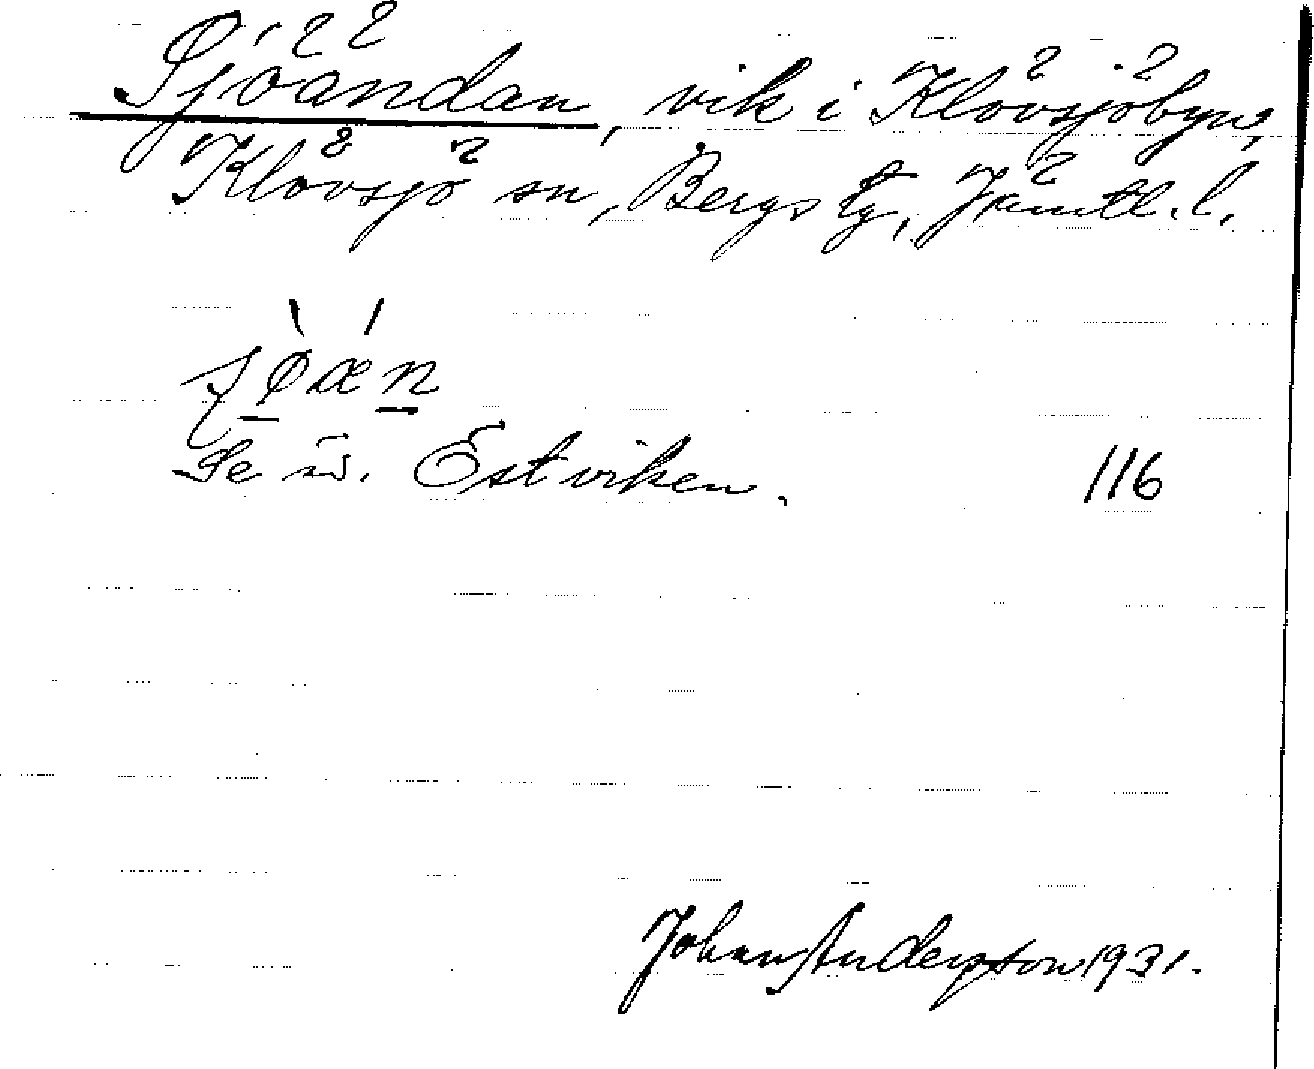 Sjöändan, vik i Klövsjöbyn,
Klövsjö sn, Bergs tg, Jämtl. l.
Se vid. Estviken. 116
Johan Anderzson 1931.